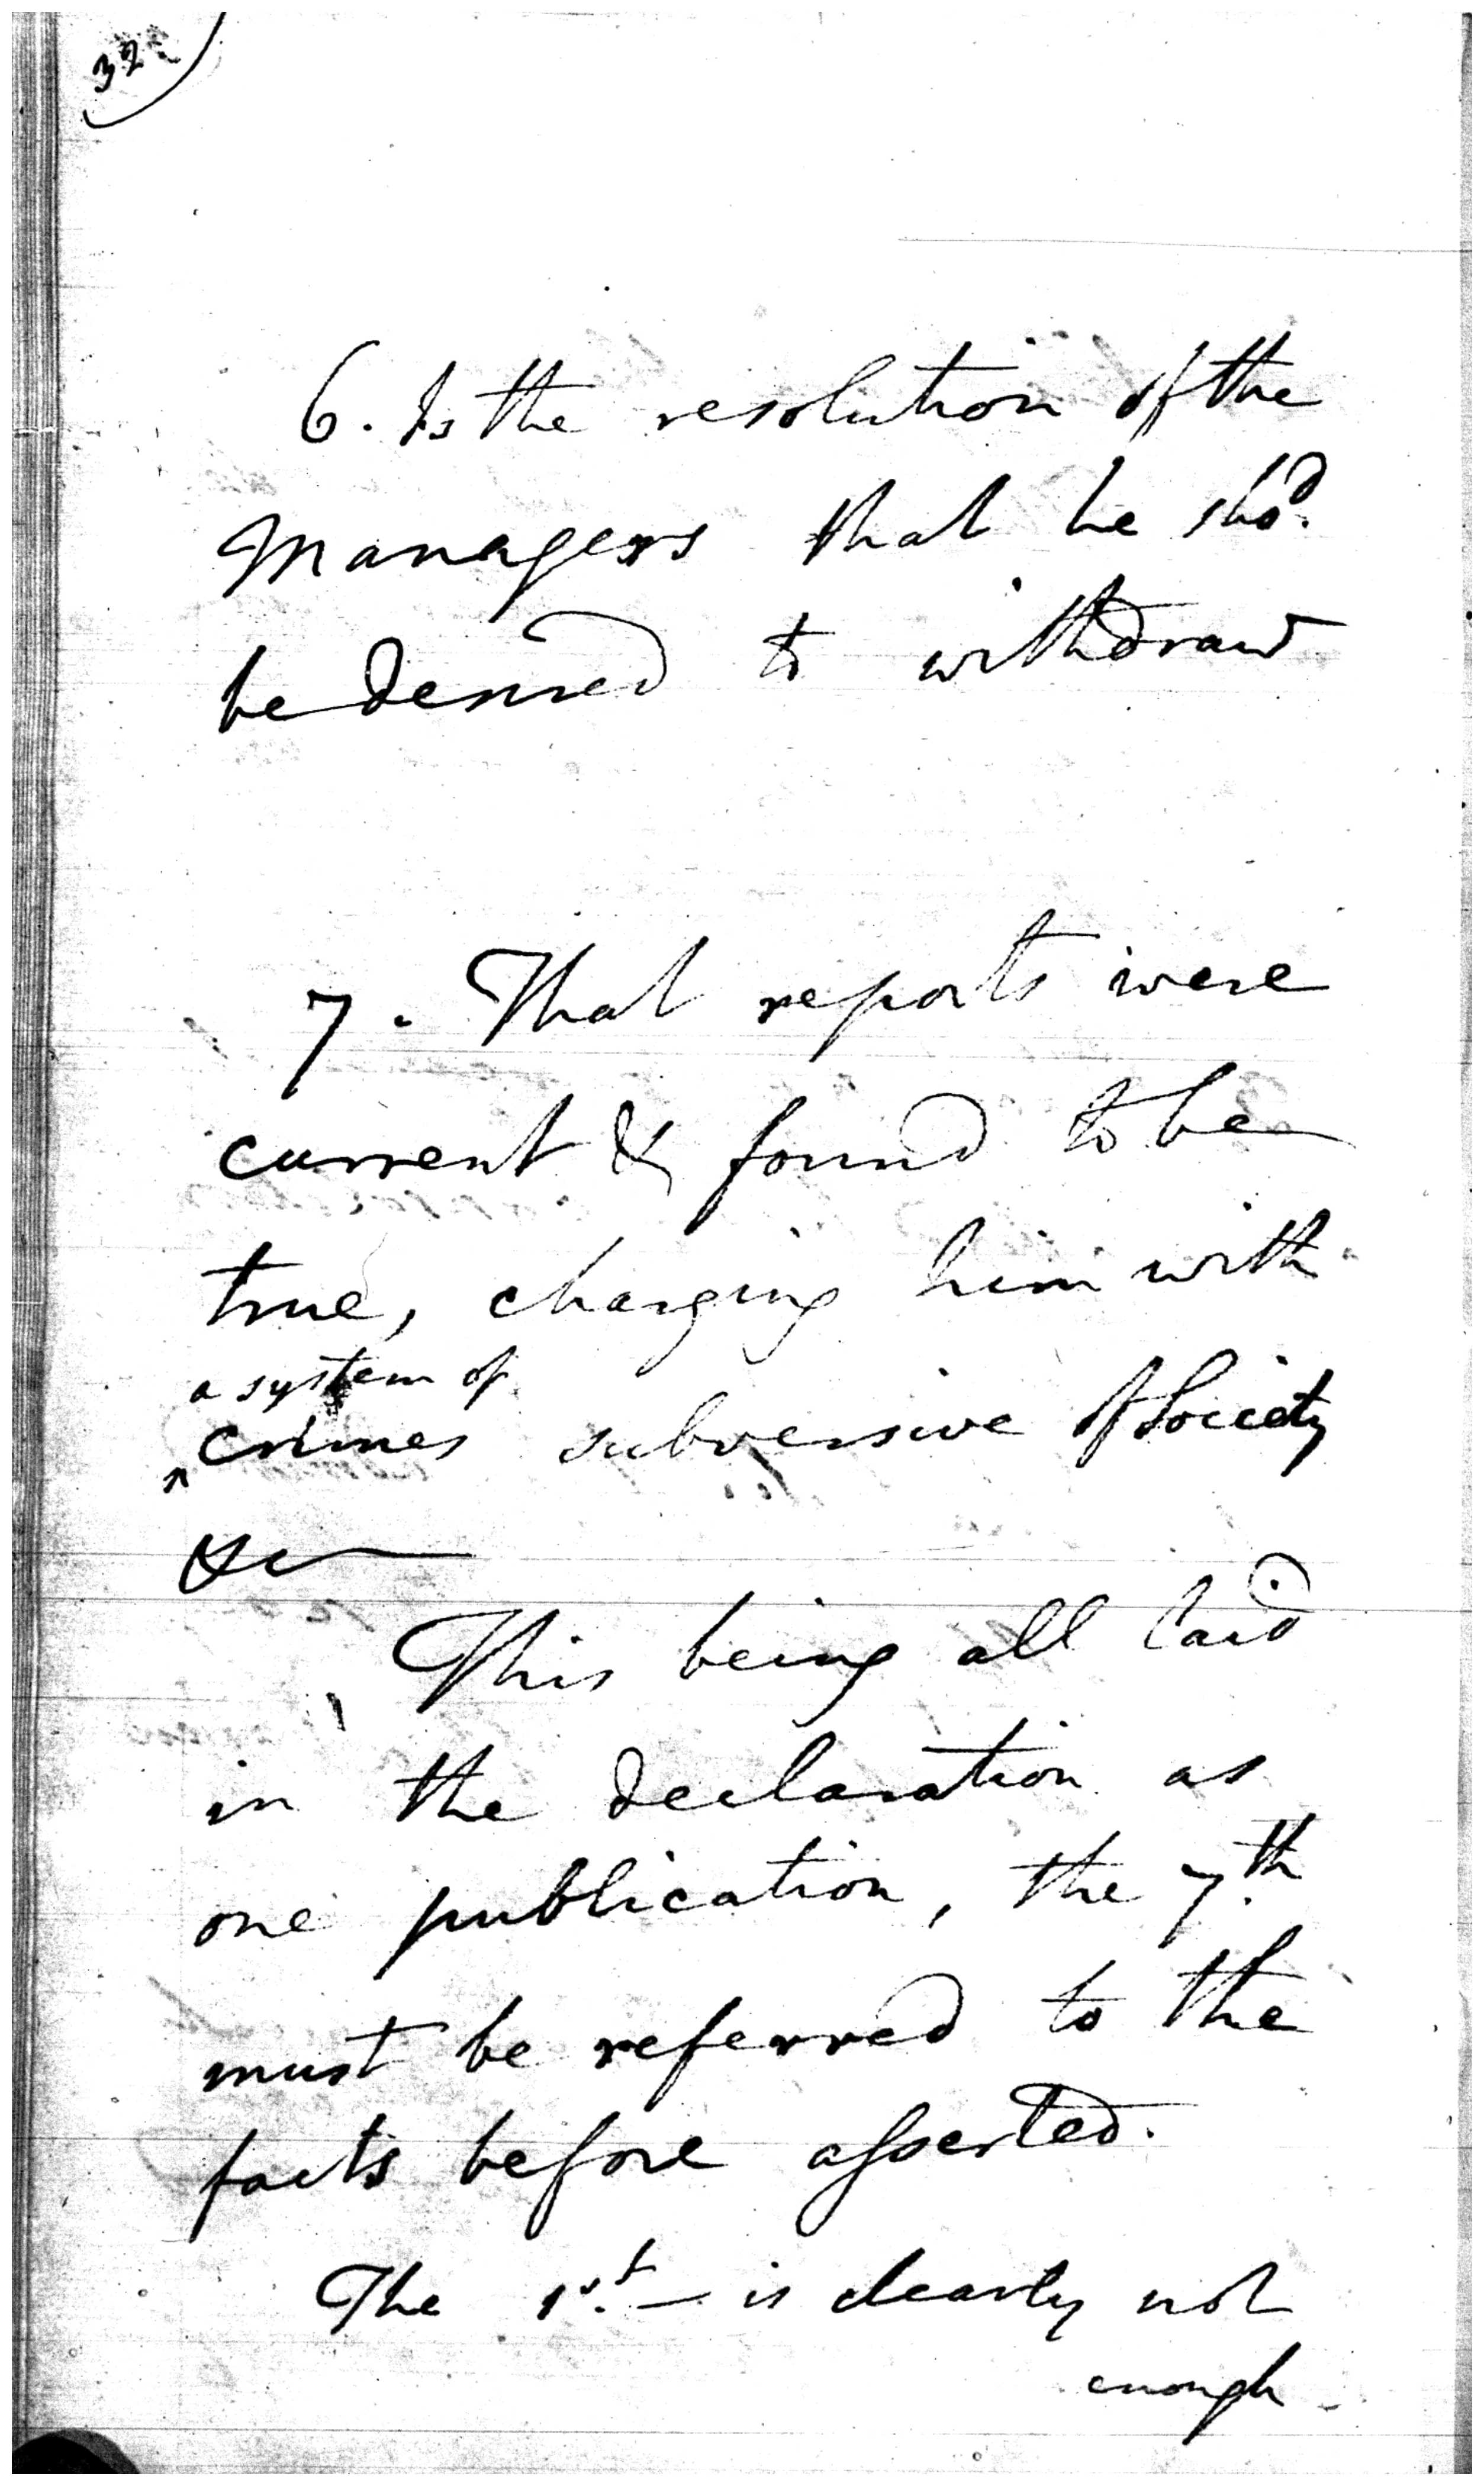 32
6. Is the resolution of the
Managers that he sho.d
be desired to withdraw
7. That reports were
current & found to be
true, charging him with
a system of
^crimes subversive of Society
&c
This being all laid
in the declaration as
one publication, the 7.th
must be referred to the
facts before asserted.
The 1s.t is clearly not
enough